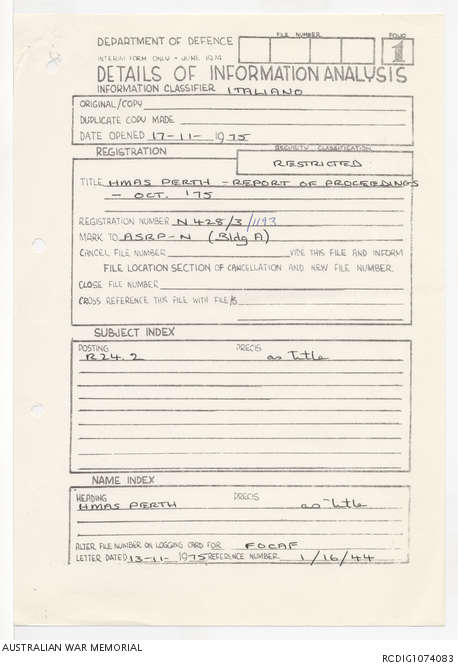 DEPARTMENT OF DEFENCE
FILE NUMBER
FOLIO
1
INTERIM FORM ONLY - JUNE 1974
DETAILS OF INFORMATION ANALYSIS
INFORMATION CLASSIFIER ITALIANO
ORIGINAL/COPY
DUPLICATE COPY MADE
DATE OPENED 17-11- 1975
REGISTRATION
SECURITY CLASSIFICATION
RESTRICTED
TITLE HMAS PERTH - REPORT OF PROCEEDINGS
- OCT. '75
REGISTRATION NUMBER N 428/3/1193
MARK TO ASRP-N (Bldg A)
CANCEL FILE NUMBER VIDE THIS FILE AND INFORM
FILE LOCATION SECTION OF CANCELLATION AND NEW FILE NUMBER.
CLOSE FILE NUMBER
CROSS REFERENCE THIS FILE WITH FILE/S
SUBJECT INDEX
POSTING PRECIS
R24.2 as Title
NAME INDEX
HEADING PRECIS
HMAS PERTH as Title
ALTER FILE NUMBER ON LOGGING CARD FOR FOCAF
LETTER DATED 13-11- 1975 REFERENCE NUMBER 1/16/44
AUSTRALIAN WAR MEMORIAL
RCDIG1074083